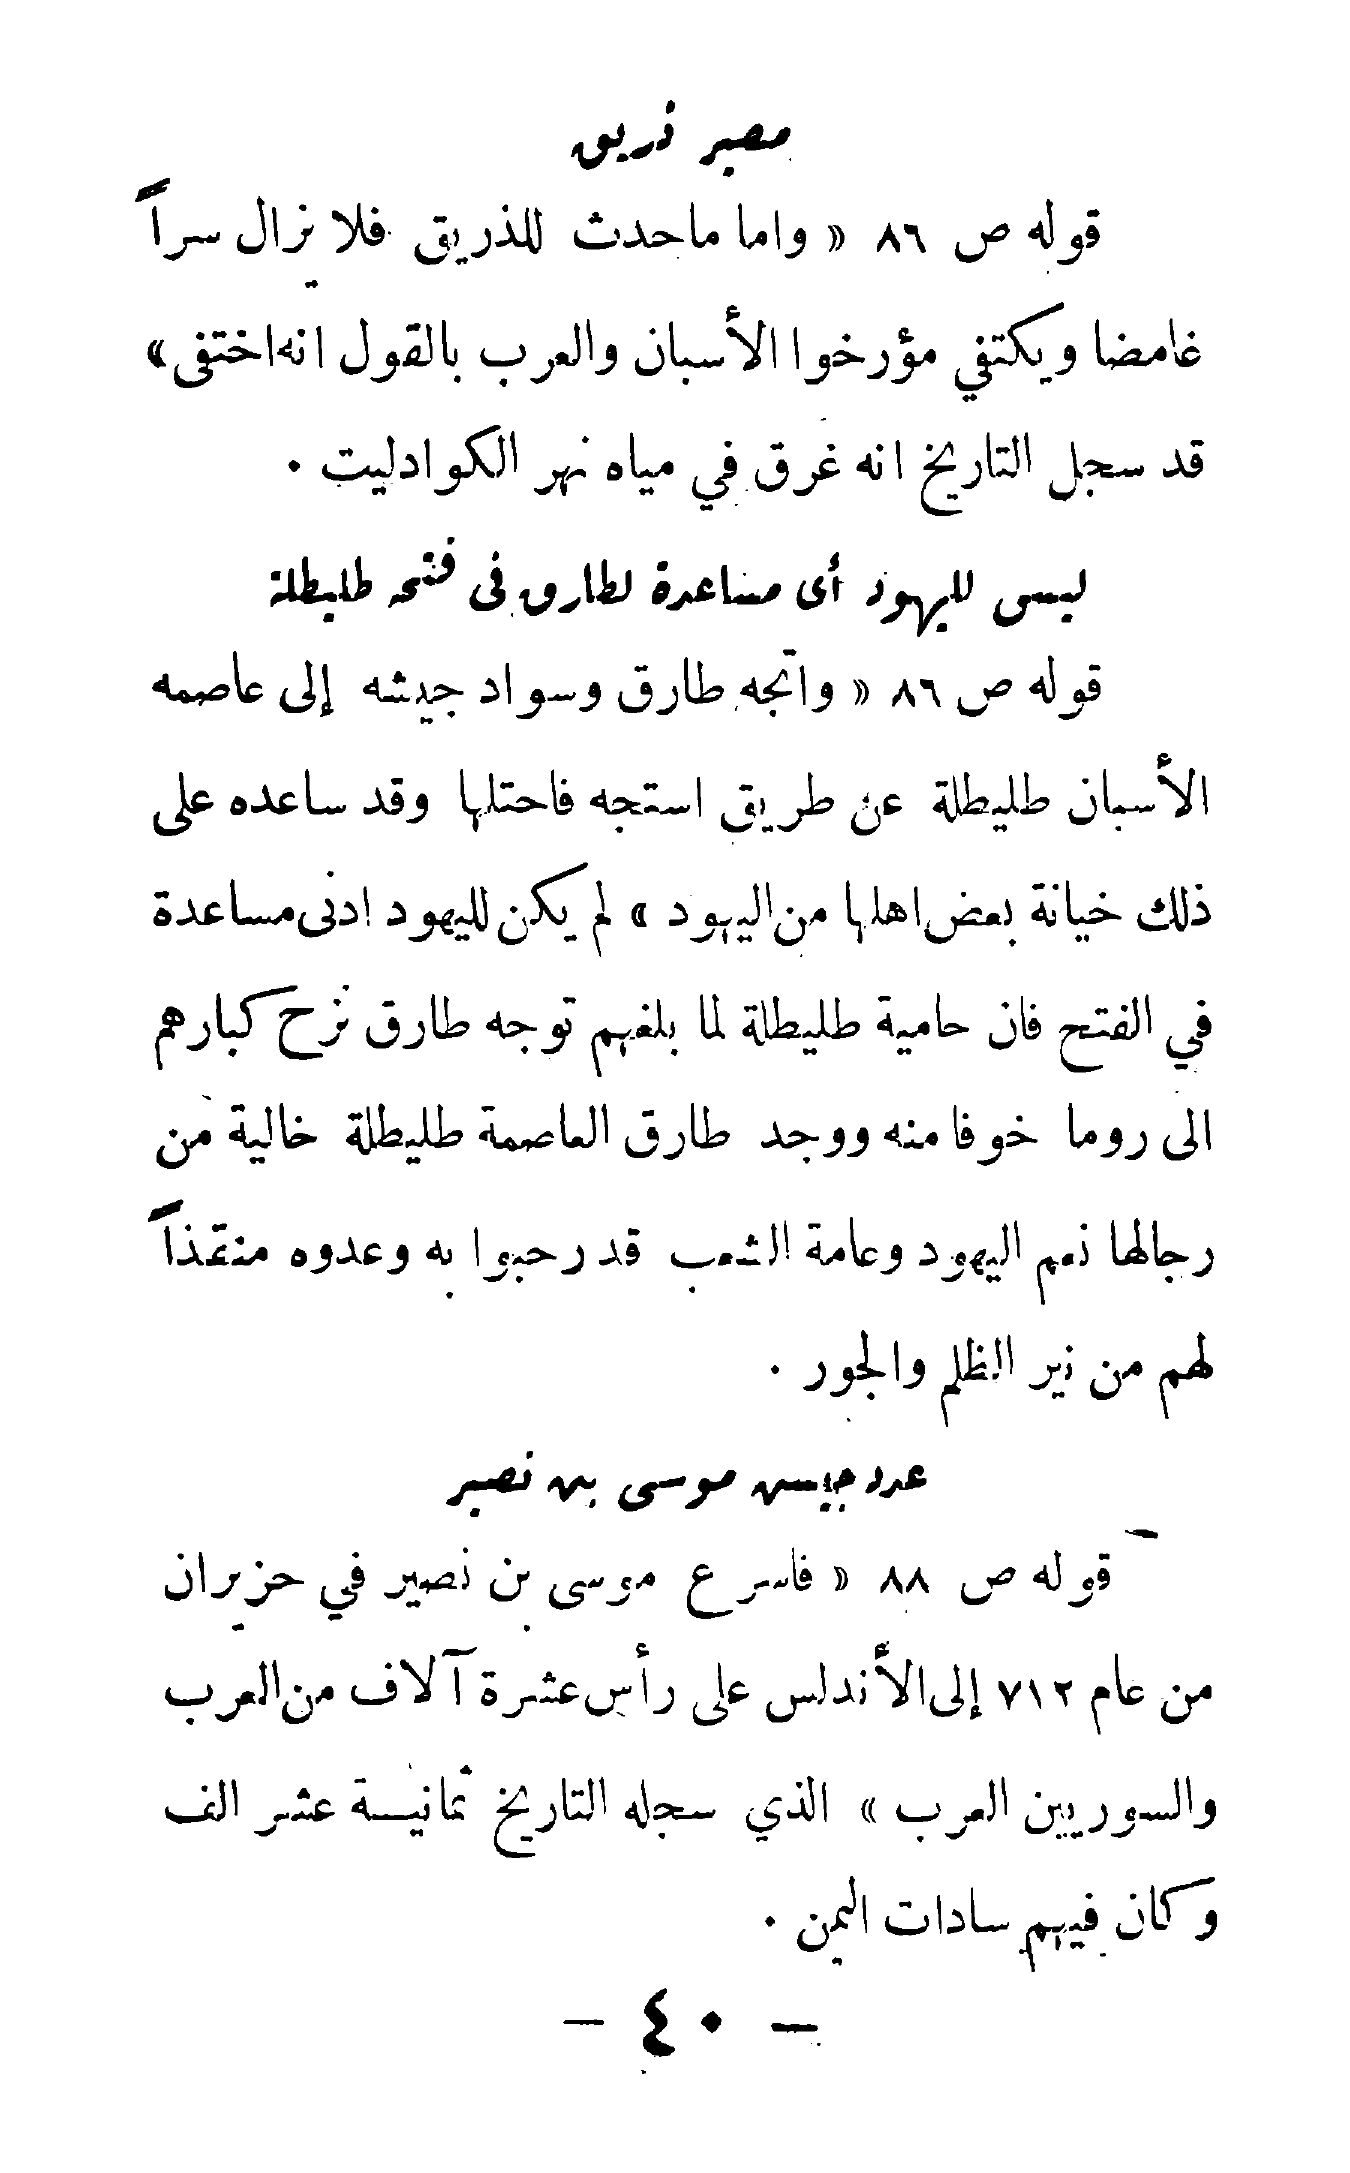 مصير ذريق
قوله ص ٨٦ « واما ماحدث للذريق فلا يزال سراً
غامضا ويكتفي مؤرخوا الأسبان والعرب بالقول انه اختفى »
قد سجل التاريخ انه غرق في مياه نهر الكوادليت .
ليس لليهود أى مساعدة لطارق فى فتح طليطلة
قوله ص ٨٦ « واتجه طارق وسواد جيشه إلى عاصمه
الأسبان طليطلة عن طريق استجه فاحتلها وقد ساعده على
ذلك خيانة بعض اهلها من اليهود » لم يكن لليهود ادنى مساعدة
في الفتح فان حامية طليطلة لما بلغهم توجه طارق نزح كبارهم
الى روما خوفا منه ووجد طارق العاصمة طليطلة خالية من
رجالها نعم اليهود وعامة الشعب قد رحبوا به وعدوه منقذاً
لهم من نير الظلم والجور .
عدد جيش موسى بن نصير
قوله ص ٨٨ « فاسرع موسى بن نصير في حزيران
من عام ٧١٢ إلى الأندلس على رأس عشرة آلاف من العرب
والسوريين العرب » الذي سجله التاريخ ثمانيسة عشر الف
وكان فيهم سادات اليمن .
— ٤٠ —